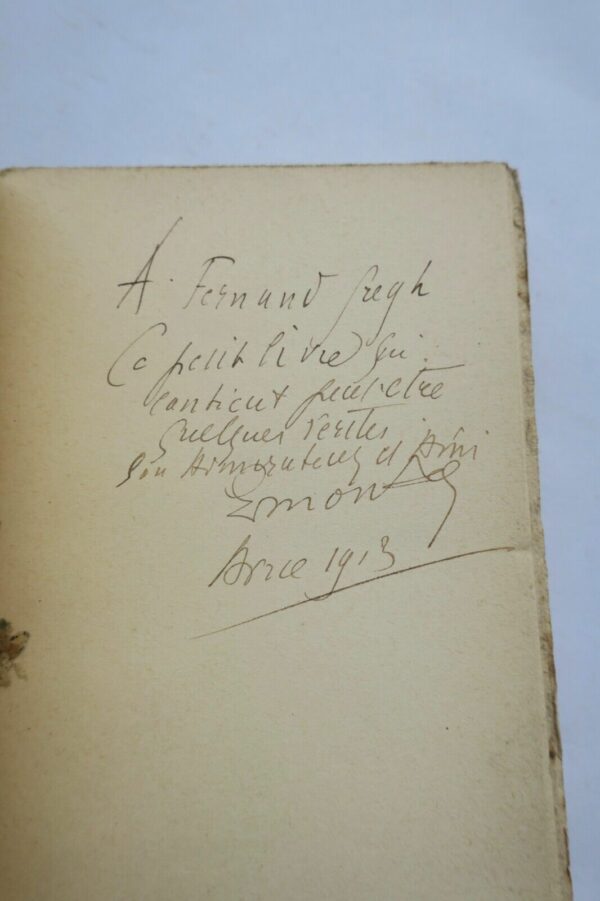 A. Fernand Gregh
Ce petit livre qui
contient peut-être
quelques vérités.
Son admirateur et ami
1913